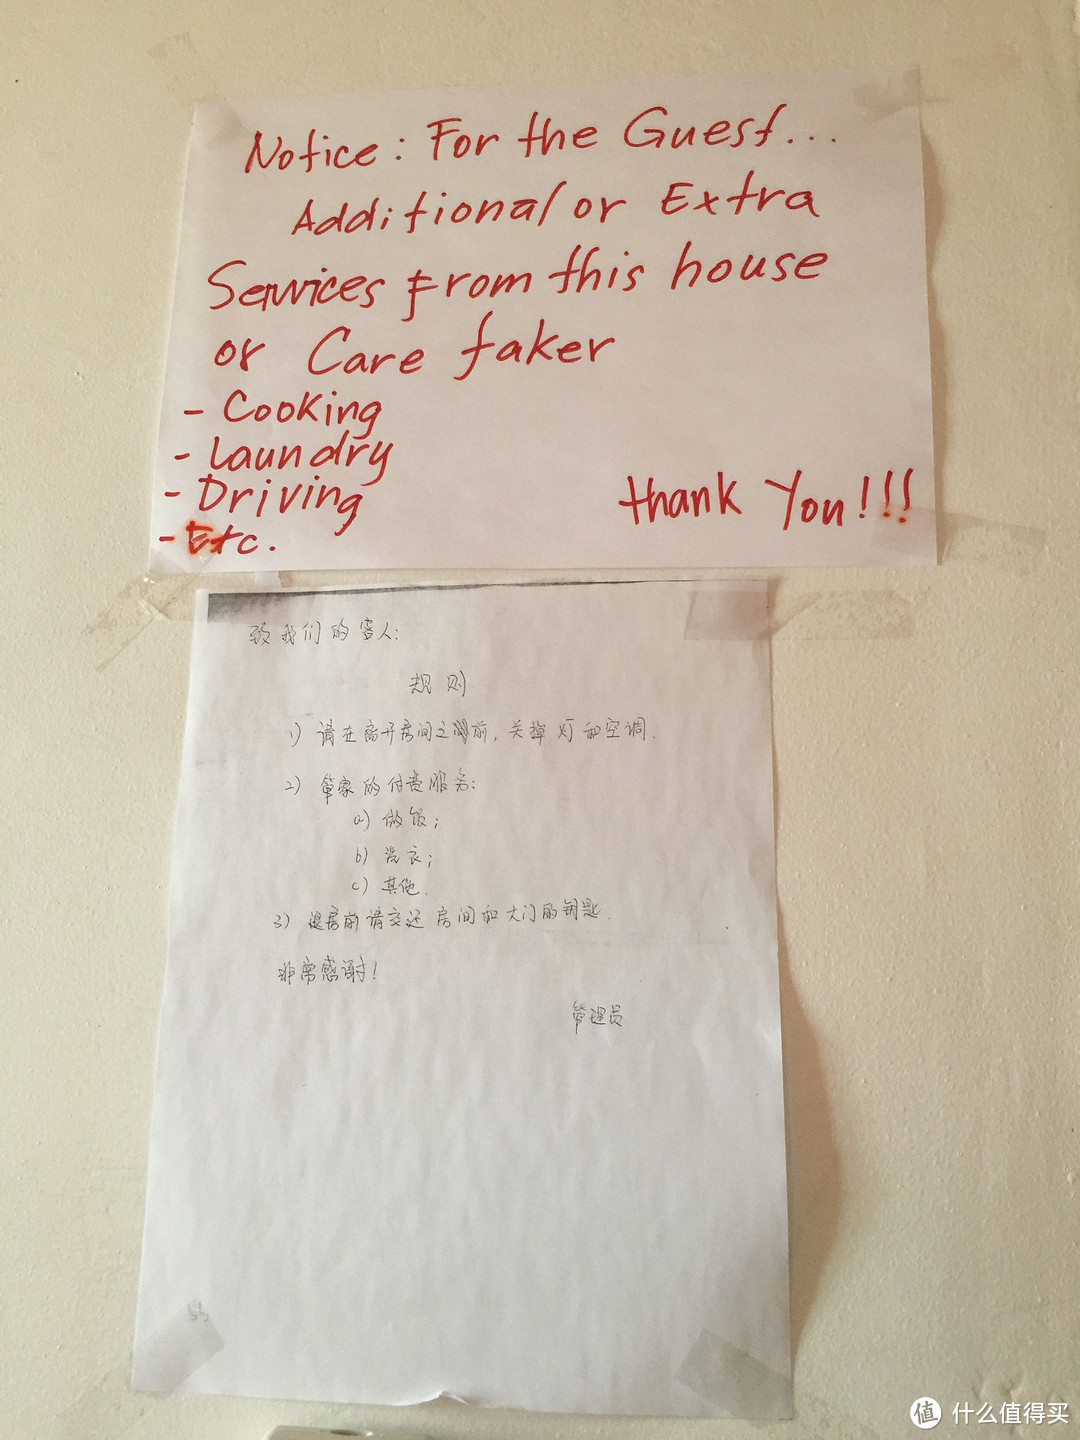 Notice: For the Guest...
Additional or Extra
Services From this house
or Care taker
- Cooking
- Laundry
- Driving
- Etc.
thank You!!!
致我们的客人:
规则
1) 请在离开房间之前, 关掉灯和空调.
2) 管家的付费服务:
a) 做饭;
b) 洗衣;
c) 其他.
3) 退房前请交还房间和大门的钥匙.
非常感谢!
管理员
值 什么值得买